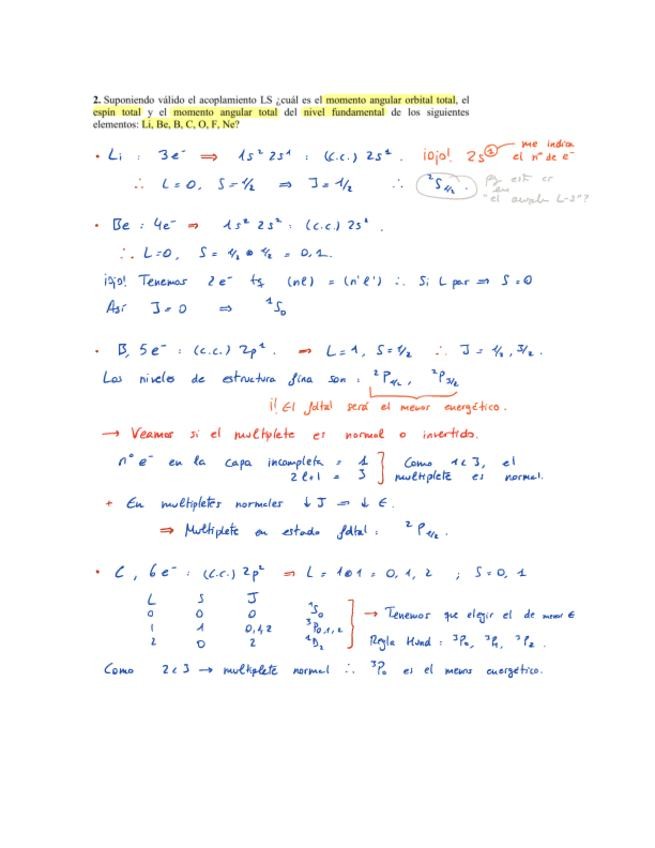 2. Suponiendo válido el acoplamiento LS ¿cuál es el momento angular orbital total, el
espín total y el momento angular total del nivel fundamental de los siguientes
elementos: Li, Be, B, C, O, F, Ne?
• Li : 3e⁻ ⇒ 1s² 2s¹ : (c.c.) 2s¹. ¡Ojo! 2s① me indica
el nº de e⁻
∴ L=0, S=1/2 ⇒ J=1/2 ∴ ²S₁/₂. esto es
en
"el L-S"?
• Be : 4e⁻ ⇒ 1s² 2s² : (c.c.) 2s².
∴ L=0, S= 1/2 ⊗ 1/2 = 0, 1.
¡Ojo! Tenemos 2e⁻ tq (nl) = (n'l') ∴ Si L par ⇒ S=0
Así J=0 ⇒ ¹S₀
• B, 5e⁻ : (c.c.) 2p¹. ⇒ L=1, S=1/2 ∴ J = 1/2, 3/2.
Los niveles de estructura fina son : ²P₁/₂, ²P₃/₂
¡! El fdtal será el menor energético.
→ Veamos si el multiplete es normal o invertido.
nº e⁻ en la capa incompleta = 1 ] Como 1<3, el
2l+1 = 3 multiplete es normal.
+ En multipletes normales ↓J ⇒ ↓E.
⇒ Multiplete en estado fdtal : ²P₁/₂.
• C, 6e⁻ : (c.c.) 2p² ⇒ L = 1⊗1 = 0, 1, 2 ; S=0, 1
L S J
0 0 0 ¹S₀ → Tenemos que elegir el de menor E
1 1 0,1,2 ³P₀,₁,₂
2 0 2 ¹D₂ Regla Hund : ³P₀, ³P₁, ³P₂.
Como 2<3 → multiplete normal ∴ ³P₀ es el menos energético.